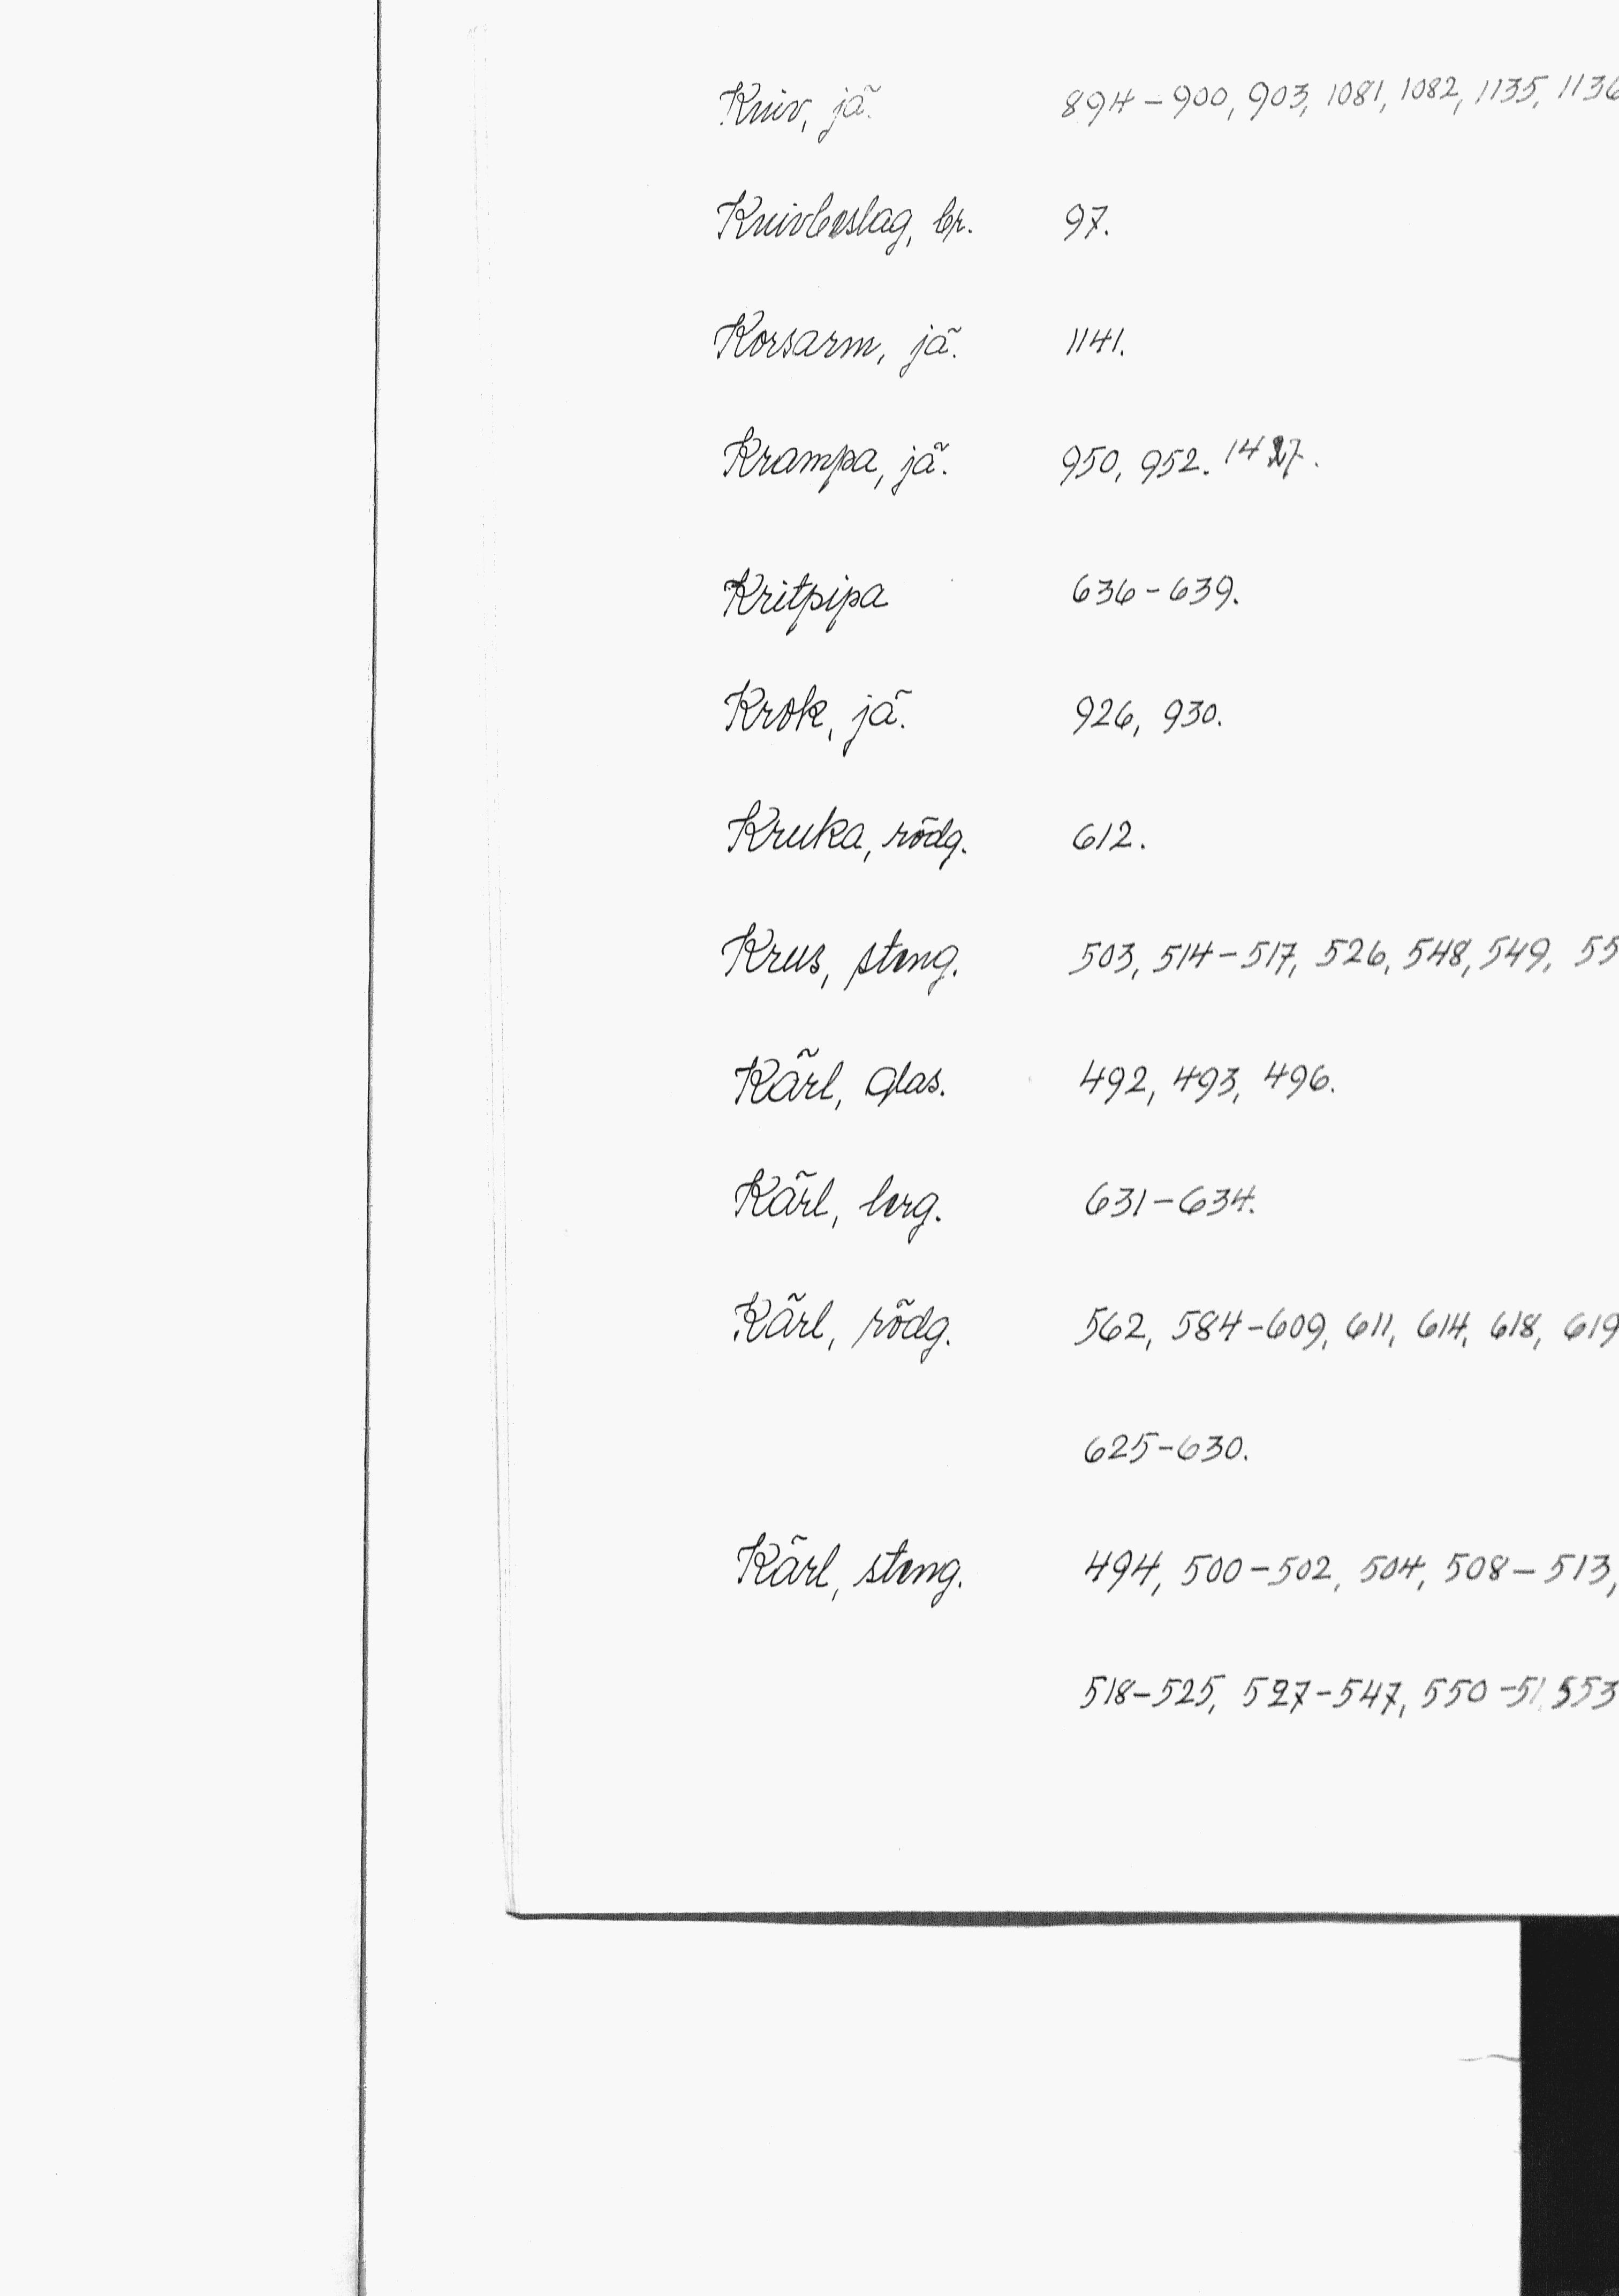 Kniv, jä. 894-900, 903, 1081, 1082, 1135, 1136
Knivbeslag, br. 97.
Korsarm, jä. 1141.
Krampa, jä. 950, 952. 1427.
Kritpipa 636-639.
Krok, jä. 926, 930.
Kruka, rödg. 612.
Krus, steng. 503, 514-517, 526, 548, 549, 55
Kärl, glas. 492, 493, 496.
Kärl, lerg. 631-634.
Kärl, rödg. 562, 584-609, 611, 614, 618, 619
625-630.
Kärl, steng. 494, 500-502, 504, 508-513,
518-525, 527-547, 550-51, 553